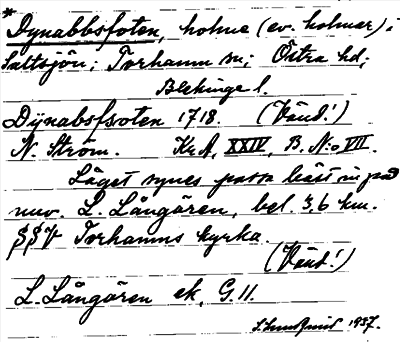 * Dynabbsfoten, holme (ev. holmar) i
Saltsjön; Torhamn sn; Östra hd;
Blekinge l.
Dÿnabsfwoten 1718. (Vänd!)
N. Ström. KrA, XXIV, B. N:o VII.
Läget synes passa bäst in på
nuv. L. Långören, bel. 3,6 km.
Torhamns kyrka.
(Vänd!)
L. Långören ek. G. 11.
S. Lundquist 1937.